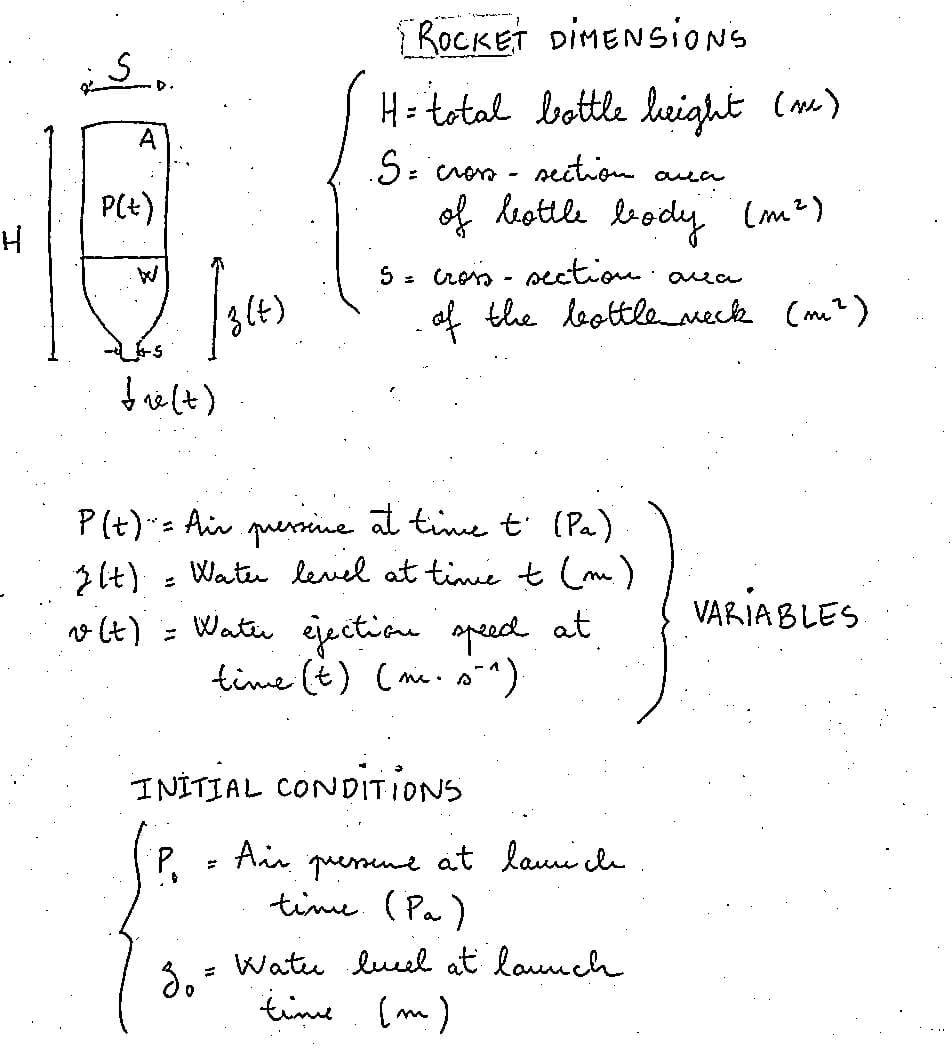 ROCKET DIMENSIONS
S
H = total bottle height (m)
A
S = cross-section area
P(t)
of bottle body (m²)
H
W
s = cross-section area
z(t)
of the bottle neck (m²)
s
v(t)
P(t) = Air pressure at time t (Pa)
z(t) = Water level at time t (m)
v(t) = Water ejection speed at
time (t) (m.s⁻¹)
VARIABLES
INITIAL CONDITIONS
P₀ = Air pressure at launch
time (Pa)
z₀ = Water level at launch
time (m)